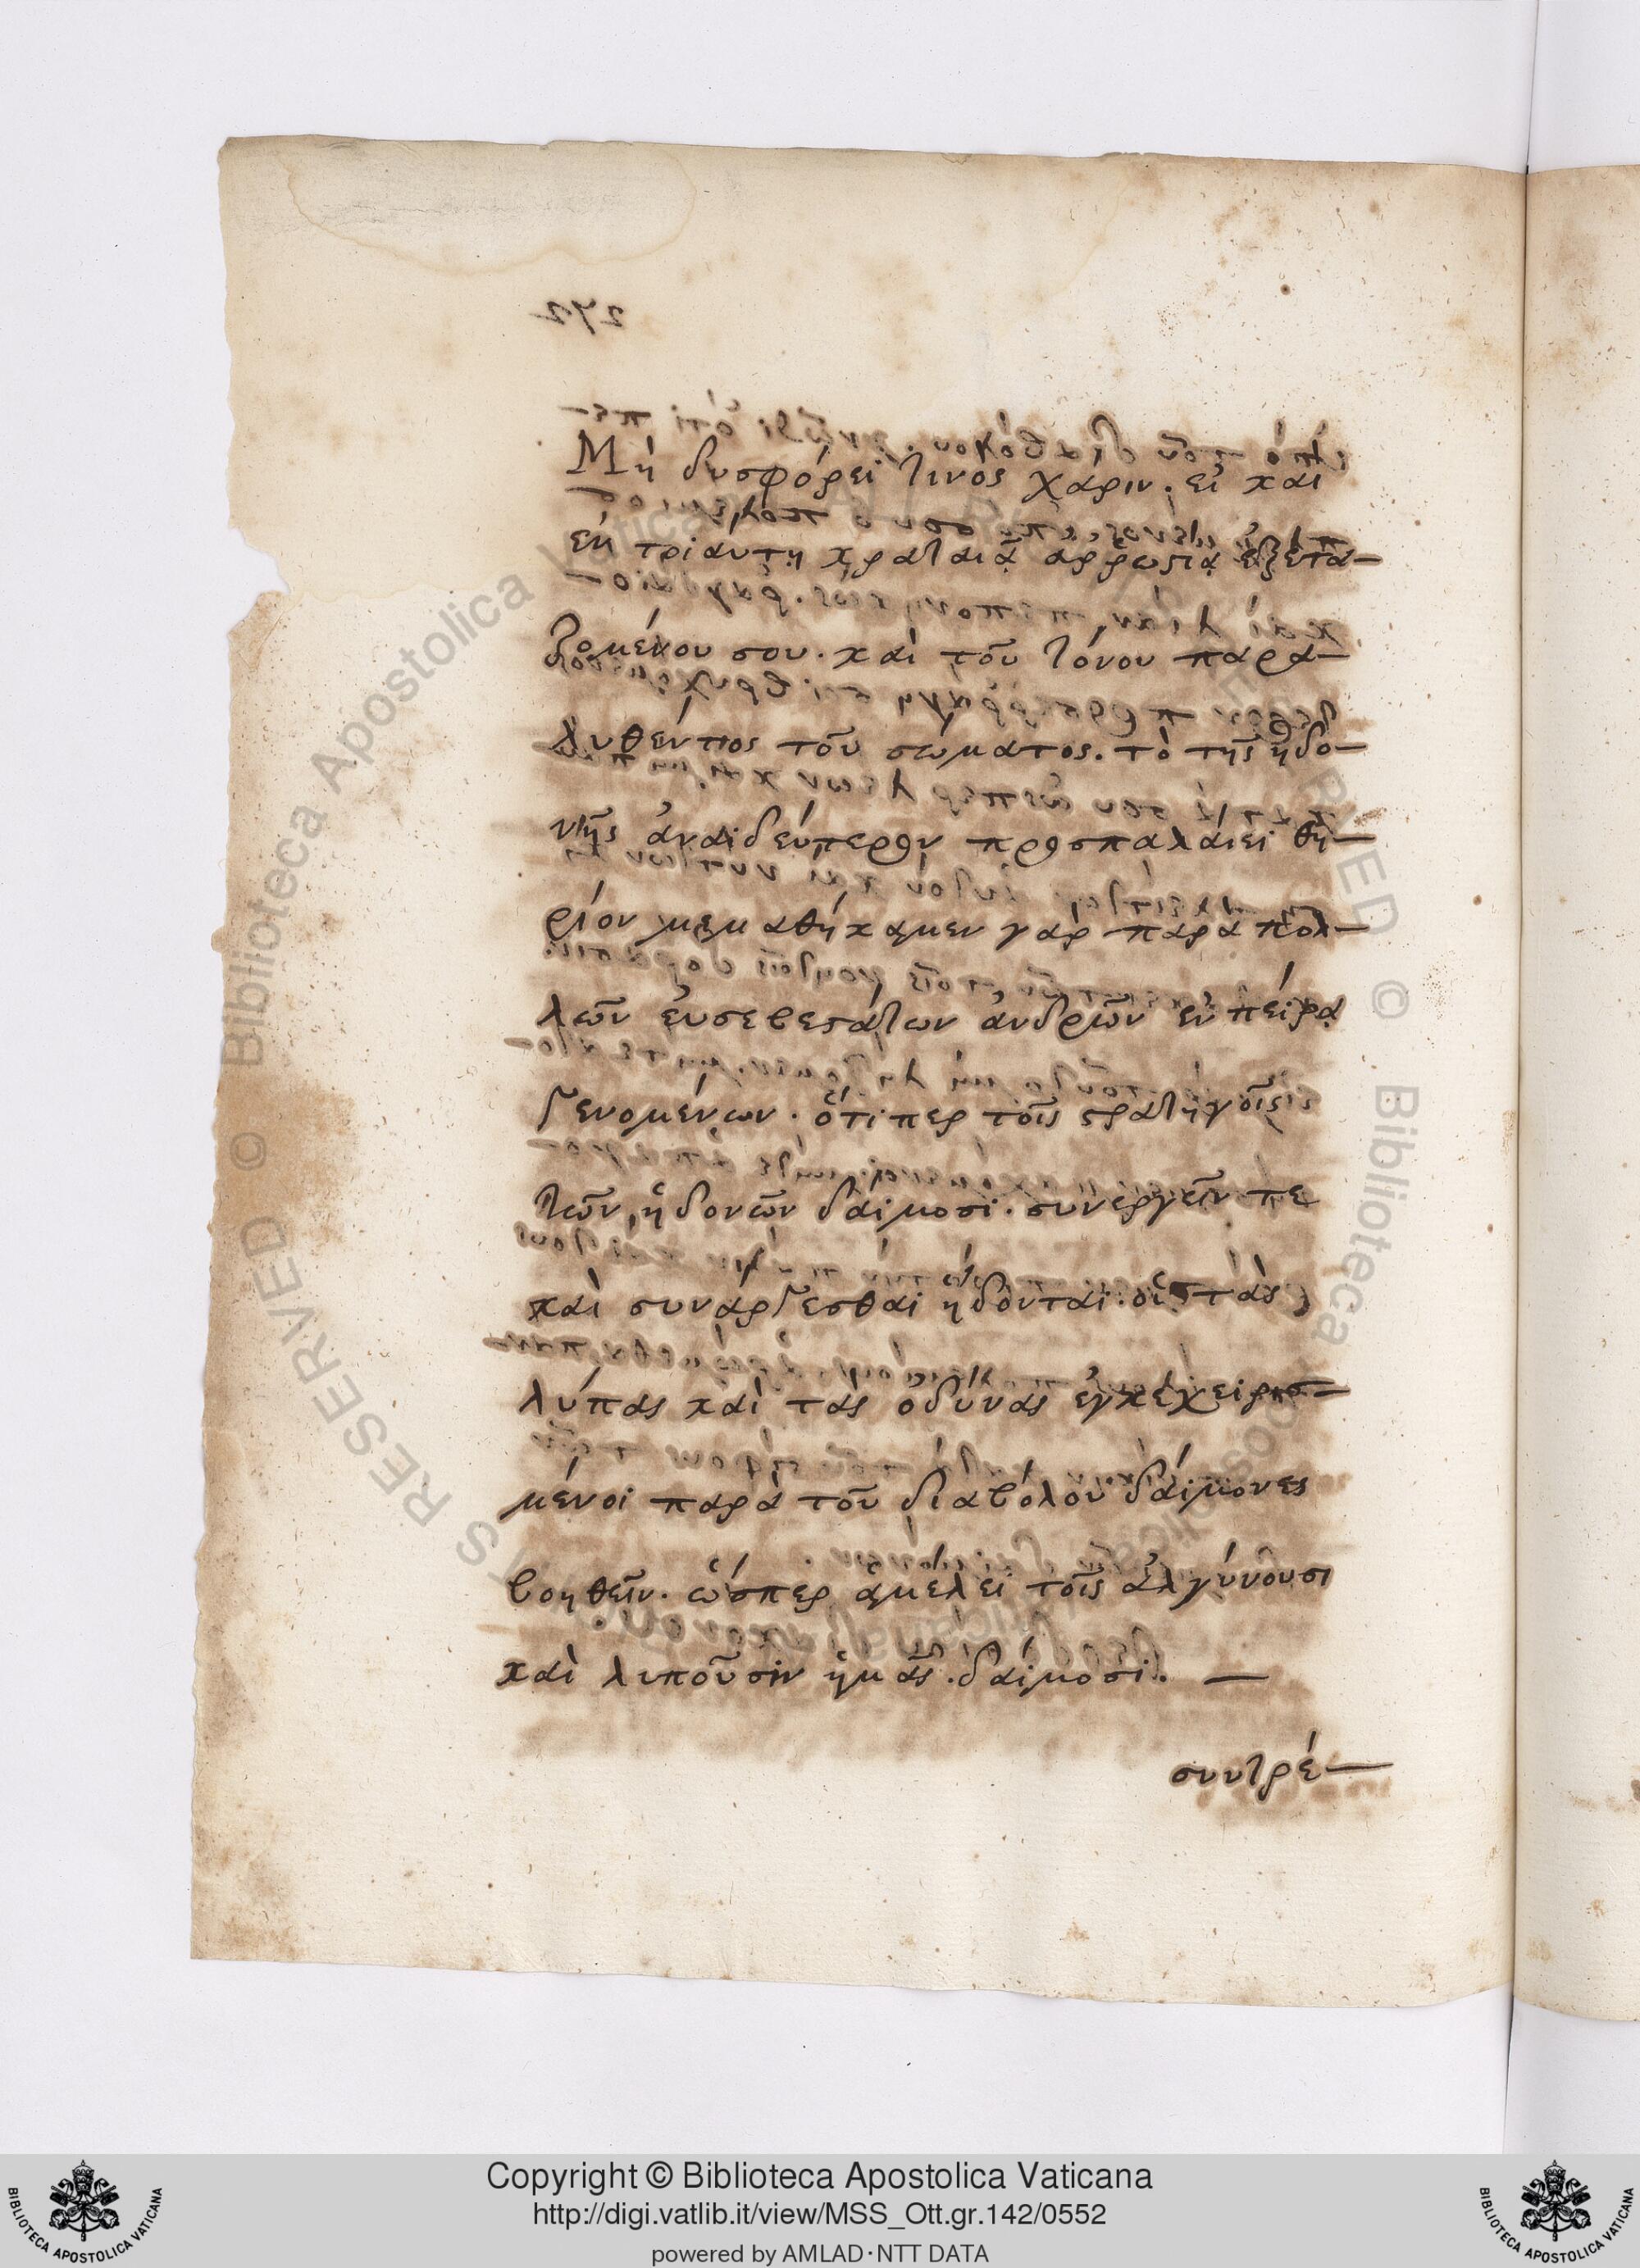 Μὴ δυσφόρει τινὸς χάριν. εἰ καὶ
ἐν τριαύτῃ κραταιᾷ ἀρρωστίᾳ ἐξετα-
ζομένου σου. καὶ τοῦ τόνου παρα-
λυθέντος τοῦ σώματος. τὸ τῆς ἡδο-
νῆς ἀναιδεύτερον προσπαλαίει θη-
ρίον μεμαθήκαμεν γὰρ παρὰ πολ-
λῶν εὐσεβεστάτων ἀνδρῶν ἐν πείρᾳ
γενομένων. ὅτι περ τοῖς στρατηγοῖς
τῶν ἡδονῶν δαίμοσι. συνεργεῖν τε
καὶ συνάρχεσθαι ἥδονται. οἱ τὰς
λύπας καὶ τὰς ὀδύνας ἐγκεχειρισ-
μένοι παρὰ τοῦ διαβόλου δαίμονες
βοηθεῖν. ὥσπερ ἀμέλει τοῖς ἀλγύνουσι
καὶ λυποῦσιν ἡμᾶς. δαίμοσι. —
συντρέ-
Copyright © Biblioteca Apostolica Vaticana
http://digi.vatlib.it/view/MSS_Ott.gr.142/0552
powered by AMLAD·NTT DATA
BIBLIOTECA APOSTOLICA VATICANA
BIBLIOTECA APOSTOLICA VATICANA